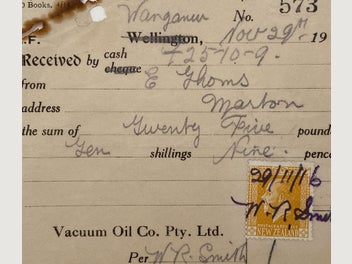 00 Books, 4/1
Wanganui
No. 573
F. Wellington, Nov 29th 19
Received by cash
cheque £25-10-9.
from E Thoms
address Marton
the sum of Twenty Five pound
Ten shillings Nine. penc
29/11/16
W. R. Smi
POSTAGE & REVENUE
NEW ZEALAND
Vacuum Oil Co. Pty. Ltd.
Per W R. Smith